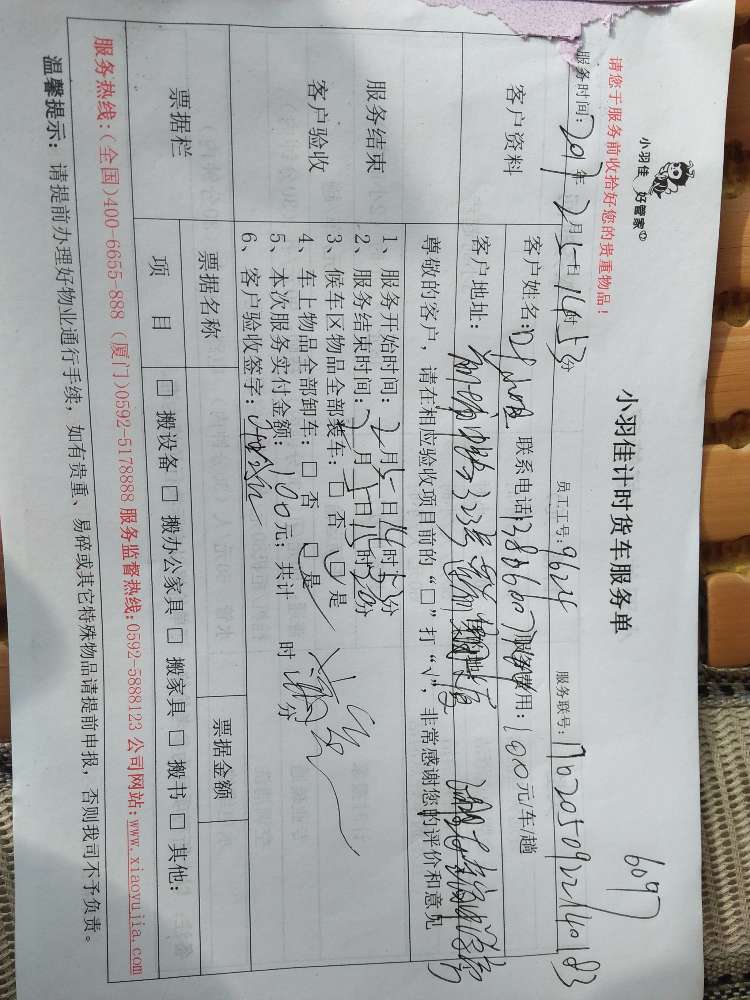 6097
小羽佳 好管家
小羽佳计时货车服务单
请您于服务前收拾好您的贵重物品！
服务时间：2017年2月5日14时53分 员工工号：9624 服务联号：
客户资料
客户姓名： 联系电话 服务费用：100元/车/趟
客户地址：
尊敬的客户，请在相应验收项目前的“□”打“√”，非常感谢您的评价和意见
服务结束
客户验收
1、服务开始时间：2月5日14时53分
2、服务结束时间：2月5日15时30分
3、候车区物品全部装车：□否 □是
4、车上物品全部卸车：□否 □是
5、本次服务实付金额：100元；共计 时 分
6、客户验收签字：
满意
票据栏
票据名称 票据金额
项目 □搬设备 □搬办公家具 □搬家具 □搬书 □其他：
服务热线：(全国)400-6655-888 (厦门)0592-5178888 服务监督热线:0592-5888123 公司网站:www.xiaoyujia.com
温馨提示：请提前办理好物业通行手续，如有贵重、易碎或其它特殊物品请提前申报，否则我司不予负责。